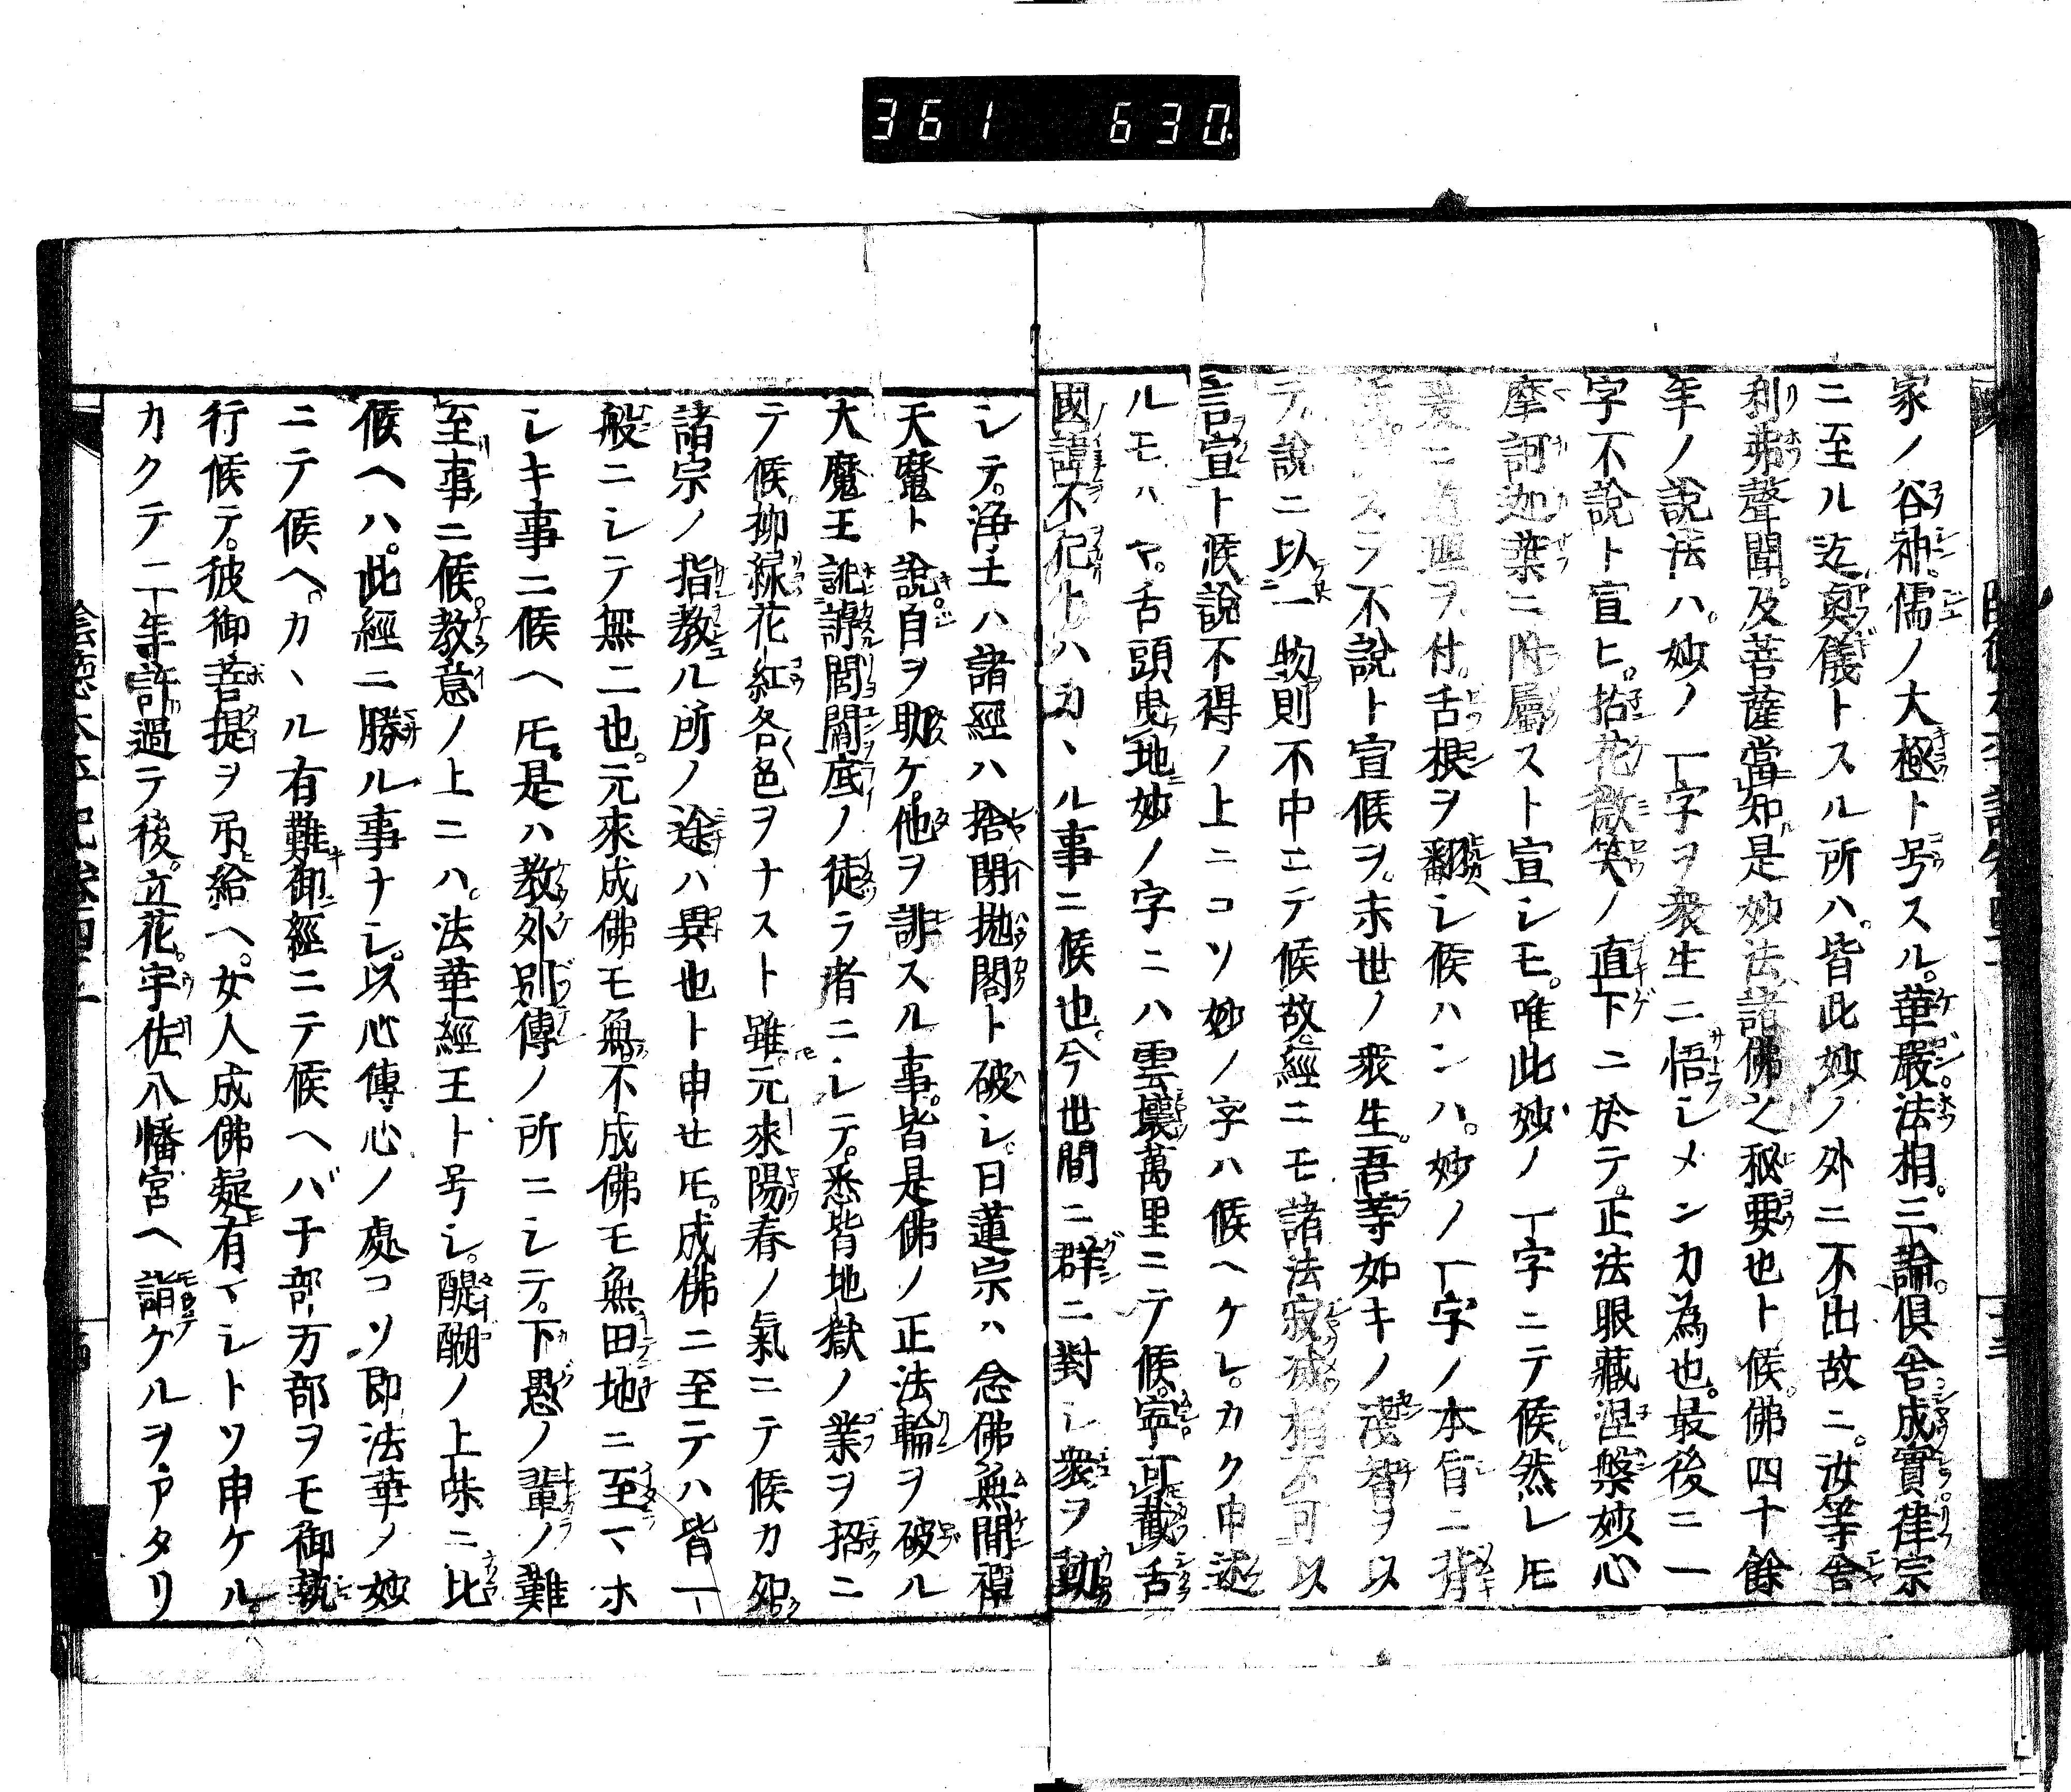 361 630
家ノ谷神。儒ノ大極ト号スル。華嚴。法相。三論。俱舍。成實。律宗
ニ至ル迄奥儀トスル所ハ。皆此妙ノ外ニ不出故ニ。汝等舍
利弗聲聞。及菩薩當知是妙法諸佛之秘要也ト候。佛四十餘
年ノ說法ハ。妙ノ一字ヲ衆生ニ悟シメンカ為也。最後ニ一
字不說ト宣ヒ。拈花微笑ノ直下ニ於テ。正法眼藏涅槃妙心
摩訶迦葉ニ附屬スト宣シモ。唯此妙ノ一字ニテ候。然レ𪜈
爰ニ ヲ付。舌根ヲ翻シ候ハンハ。妙ノ一字ノ本旨ニ背
スラ不說ト宣候ヲ。末世ノ衆生。吾等如キノ淺智ヲ以
テ。說ニ以一物則不中ニテ候故。經ニモ諸法寂滅相不可以
言宣ト候說不得ノ上ニコソ妙ノ字ハ候ヘケレ。カク申述
ルモハヤ。舌頭曳地妙ノ字ニハ雲壤萬里ニテ候。寧可截舌
國諱不犯トハカヽル事ニ候也。今世間ニ群ニ對シ衆ヲ動
シテ。淨土ハ諸經ハ捨閉抛閣ト破シ。日蓮宗ハ念佛無間禪
天魔ト說。自ヲ助ケ。他ヲ誹スル事。皆是佛ノ正法輪ヲ破ル
大魔王訛謗閭閻底ノ徒ラ者ニシテ。悉皆地獄ノ業ヲ招ニ
テ候。柳緑花紅各色ヲナスト雖元來陽春ノ氣ニテ候カ如
諸宗ノ指教ル所ノ途ハ異也ト申セ𪜈。成佛ニ至テハ皆一
般ニシテ無二也。元來成佛モ無不成佛モ無田地ニ至マホ
シキ事ニ候ヘ𪜈。是ハ教外別傳ノ所ニシテ。下愚ノ輩ノ難
至事ニ候。教意ノ上ニハ。法華經王ト号シ。醍醐ノ上味ニ比
候ヘハ。此經ニ勝ル事ナシ。以心傳心ノ處コソ即法華ノ妙
ニテ候ヘ。カヽル有難御經ニテ候ヘバ千部万部ヲモ御執
行候テ。彼御菩提ヲ吊給ヘ。女人成佛疑有マシトソ申ケル。
カクテ二年許過テ後。立花。宇佐八幡宮ヘ詣ケルヲ。アタリ